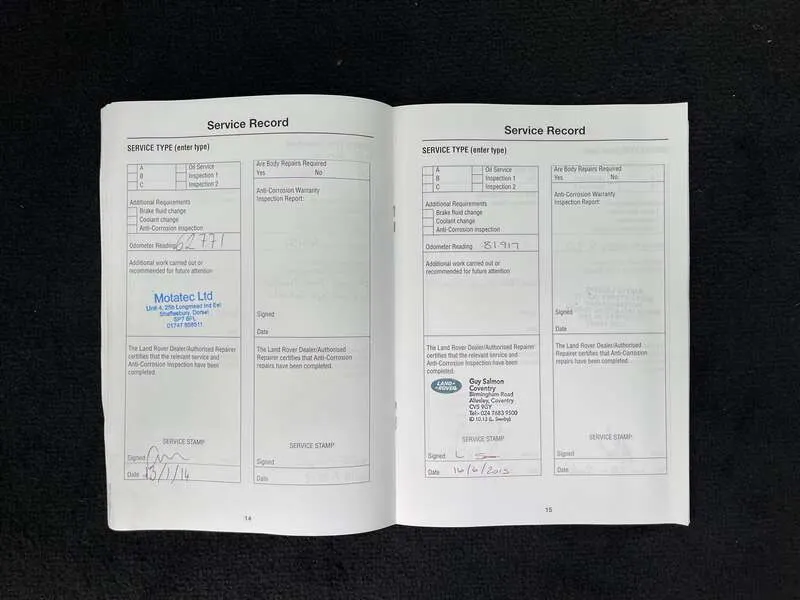 Service Record
SERVICE TYPE (enter type)
A
Oil Service
B
Inspection 1
C
Inspection 2
Additional Requirements
Brake fluid change
Coolant change
Anti-Corrosion inspection
Odometer Reading 62771
Additional work carried out or
recommended for future attention
Motatec Ltd
Unit 4, 25b Longmead Ind Est
Shaftesbury, Dorset
SP7 8PL
The Land Rover Dealer/Authorised Repairer
certifies that the relevant service and
Anti-Corrosion Inspection have been
completed.
SERVICE STAMP
Signed
Date 13/1/14
Are Body Repairs Required
Yes No
Anti-Corrosion Warranty
Inspection Report:
Signed
Date
The Land Rover Dealer/Authorised
Repairer certifies that Anti-Corrosion
repairs have been completed.
SERVICE STAMP
Signed
Date
14
Service Record
SERVICE TYPE (enter type)
A
Oil Service
B
Inspection 1
C
Inspection 2
Additional Requirements
Brake fluid change
Coolant change
Anti-Corrosion inspection
Odometer Reading 81917
Additional work carried out or
recommended for future attention
The Land Rover Dealer/Authorised Repairer
certifies that the relevant service and
Anti-Corrosion Inspection have been
completed.
LAND ROVER
Guy Salmon
Coventry
Birmingham Road
Allesley, Coventry
CV5 9GY
Tel:- 024 7683 9500
SERVICE STAMP
Signed
Date 16/6/2015
Are Body Repairs Required
Yes No
Anti-Corrosion Warranty
Inspection Report:
Signed
Date
The Land Rover Dealer/Authorised
Repairer certifies that Anti-Corrosion
repairs have been completed.
SERVICE STAMP
Signed
Date
15